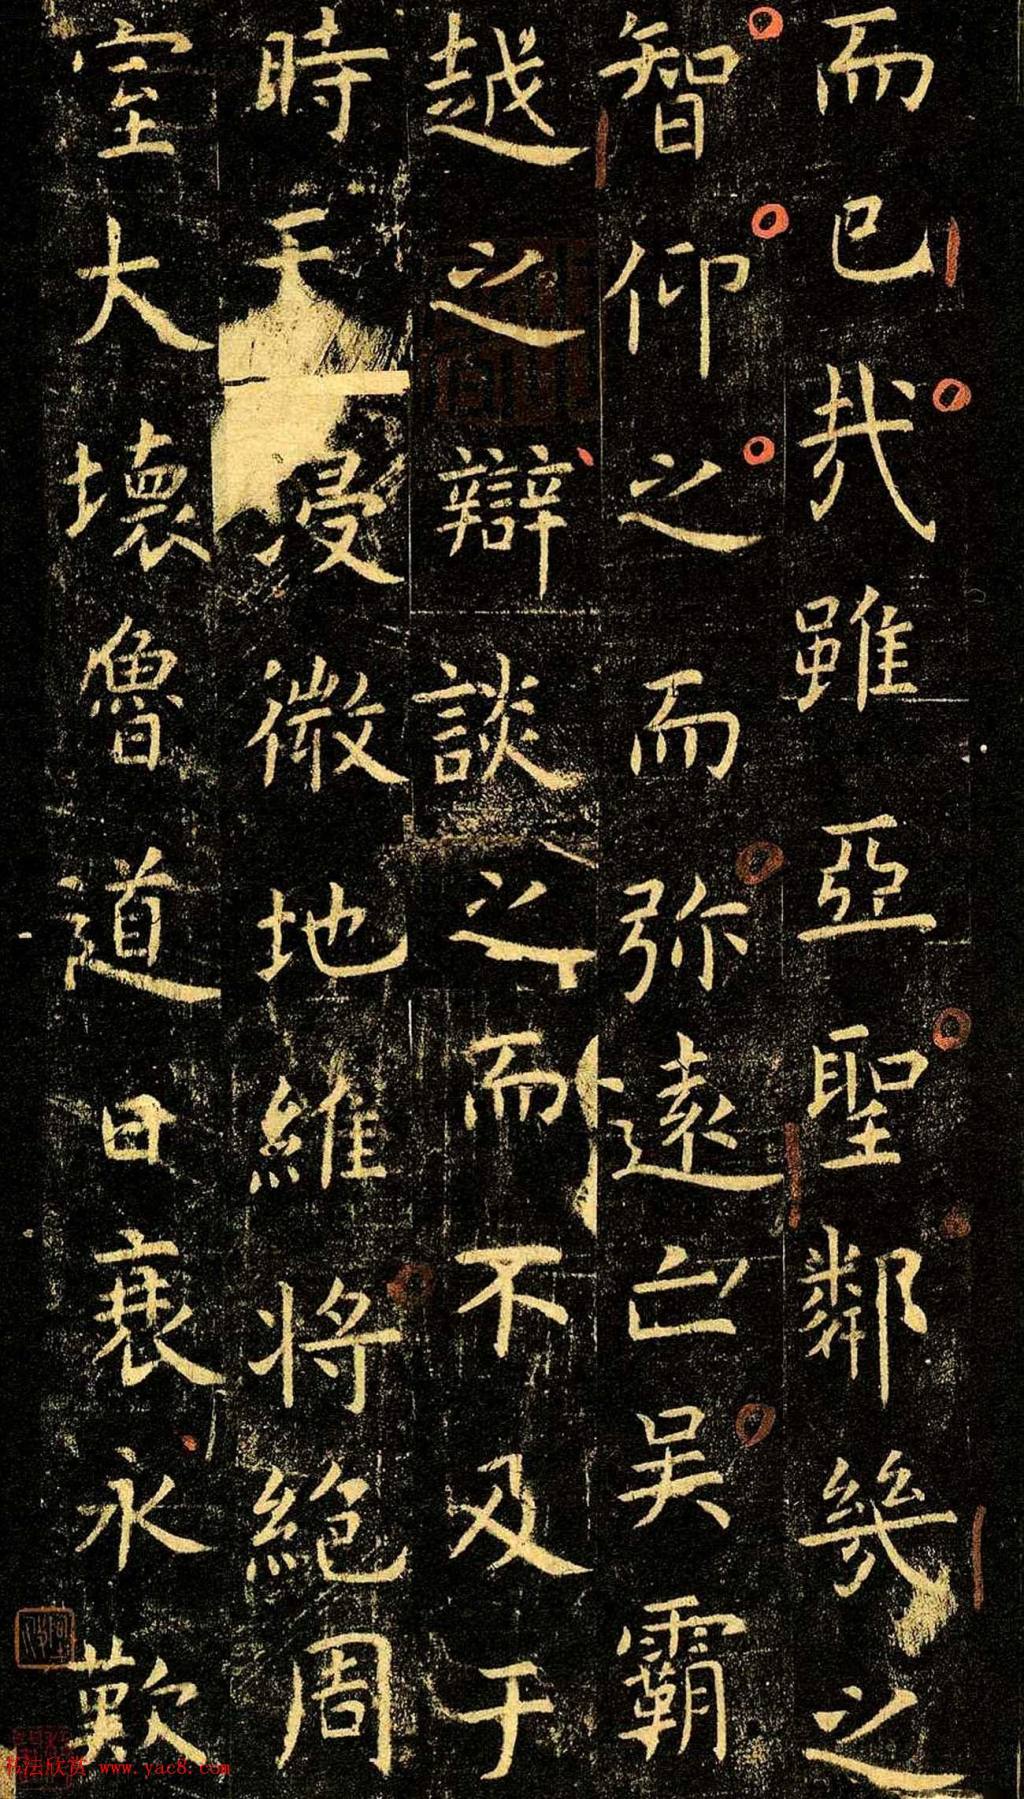 而已哉雖亞聖鄰幾之
智仰之而弥遠亡吳霸
越之辯談之而不及于
時天浸微地維將絕周
室大壞魯道日衰永歎
书法欣赏 www.yac8.com